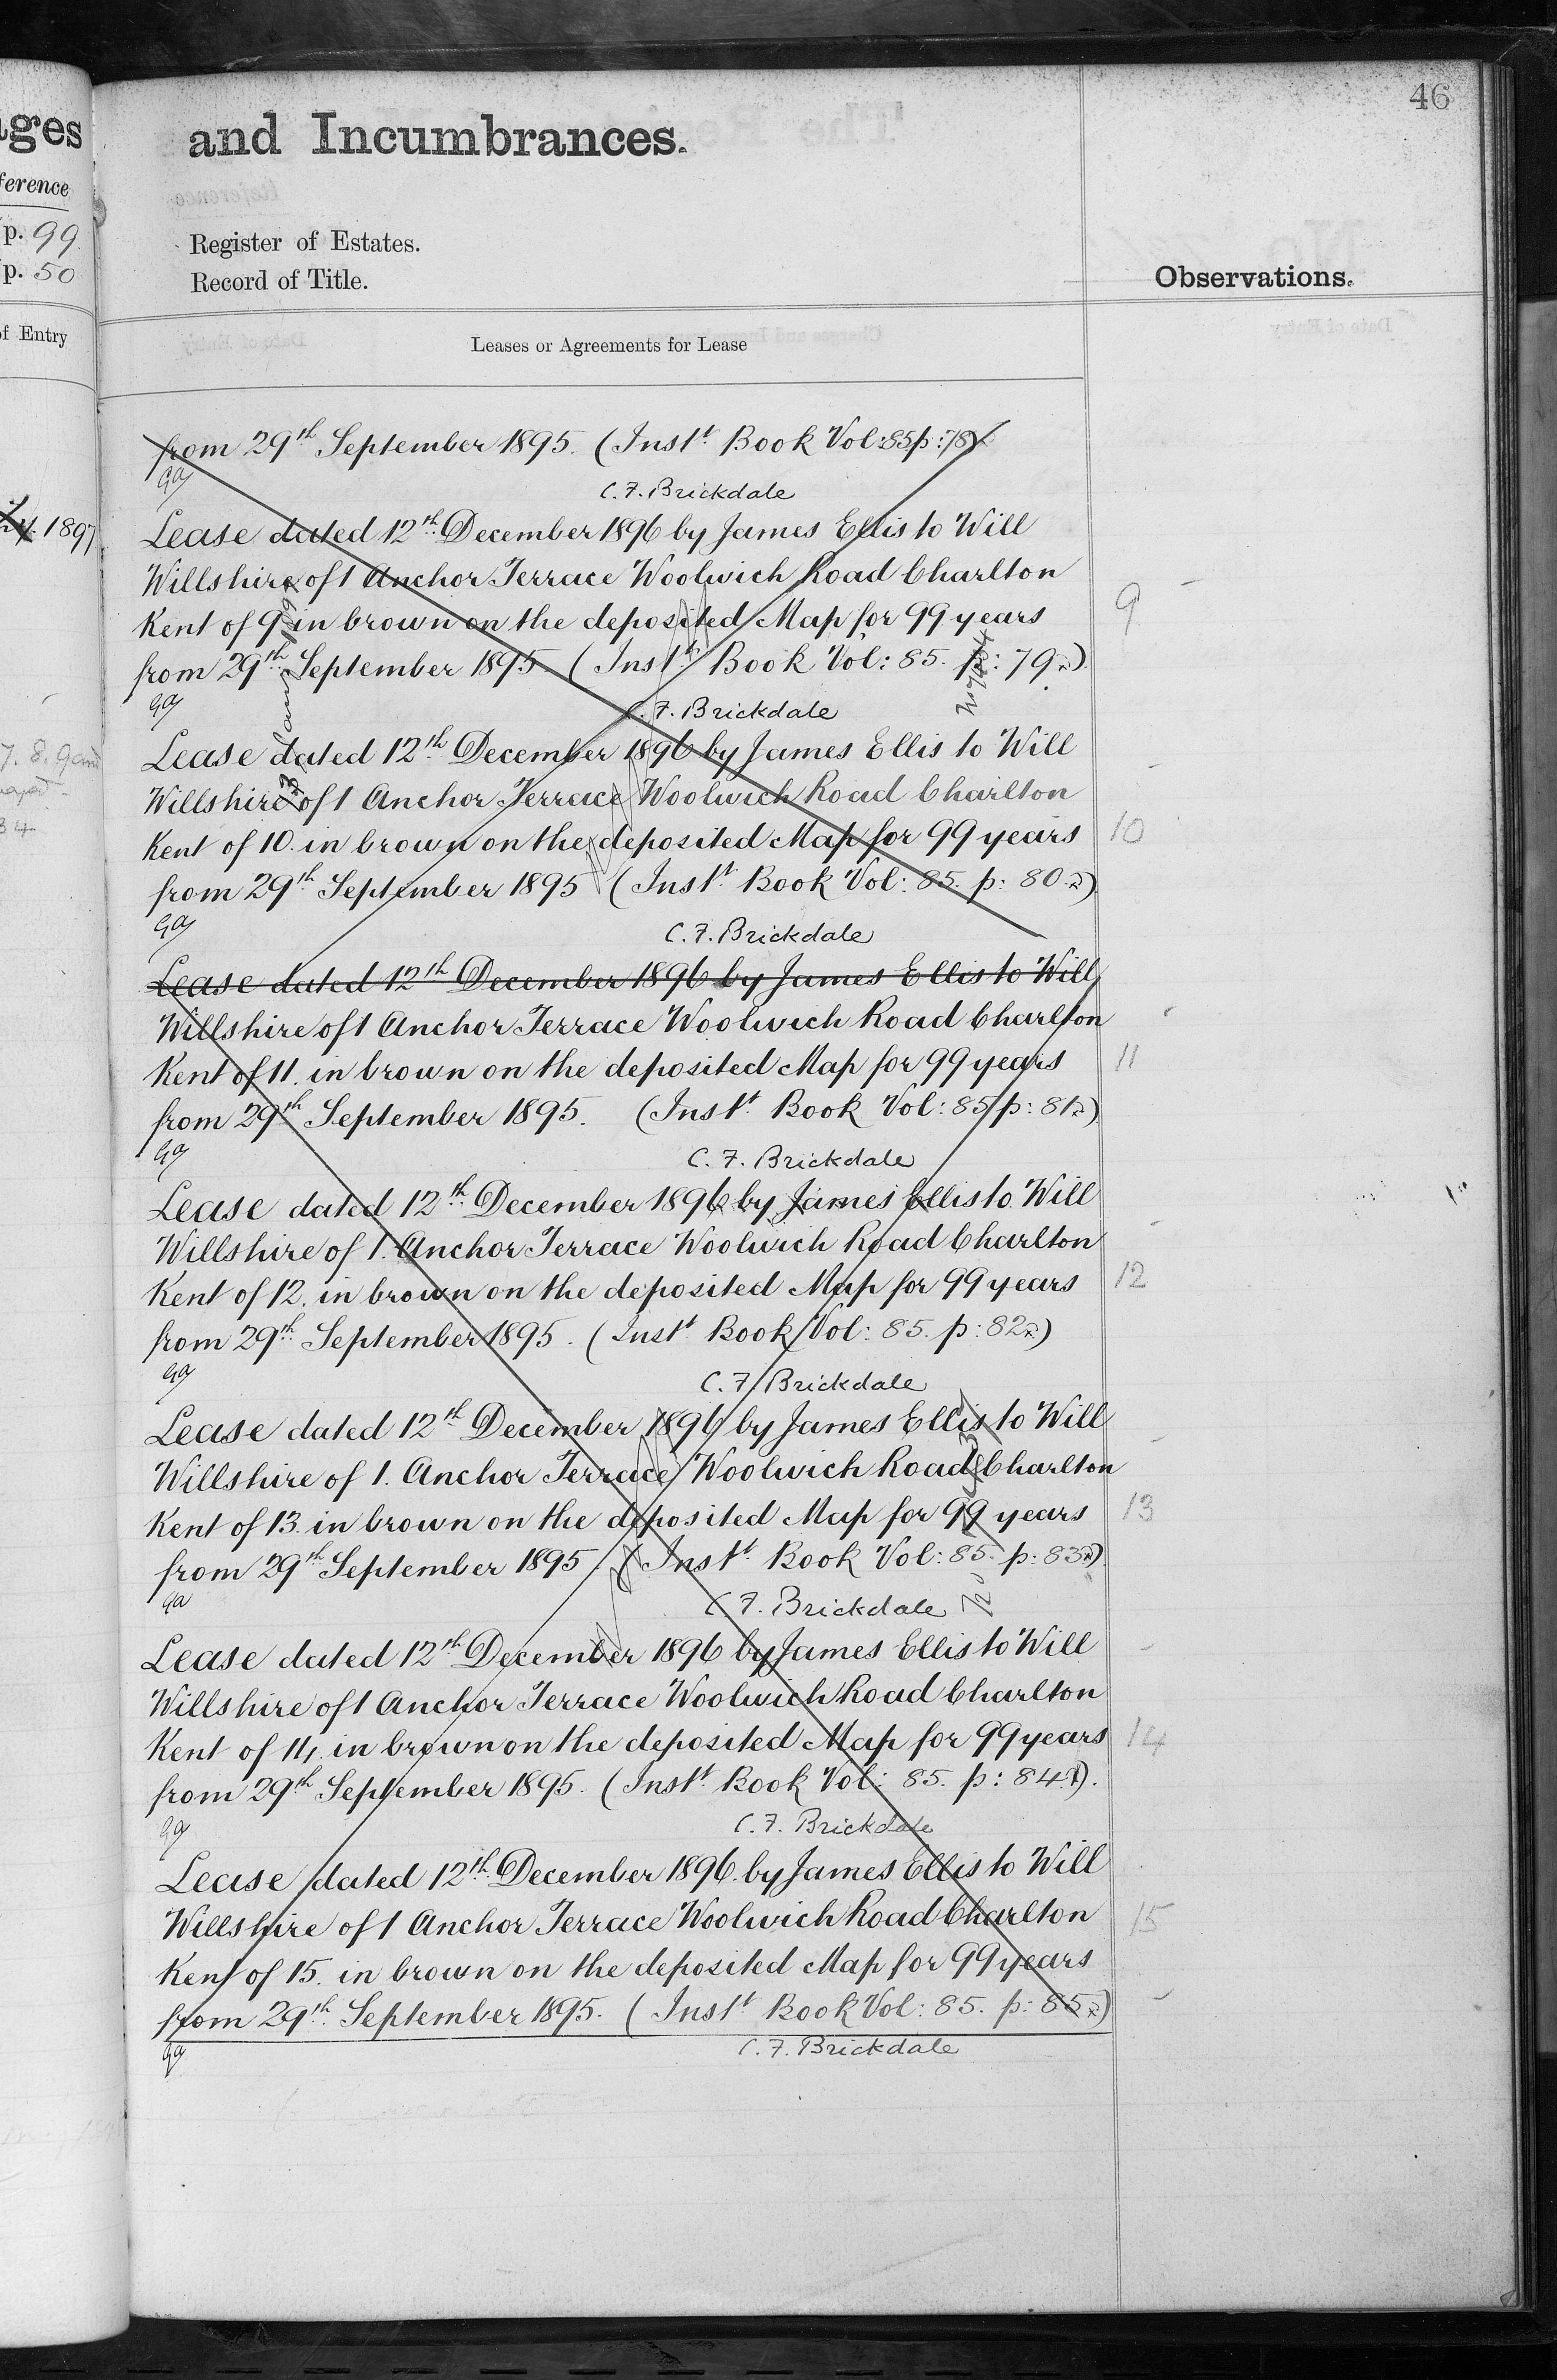 46
ages
and Incumbrances.
ference
p. 99
Register of Estates.
p. 50
Record of Title.
Observations.
of Entry
Leases or Agreements for Lease
from 29th September 1895. (Instt. Book Vol: 85 p: 78)
C. F. Brickdale
1897
Lease dated 12th December 1896 by James Ellis to Will
Willshire of 1 Anchor Terrace Woolwich Road Charlton
Kent of 9 in brown on the deposited Map for 99 years
9
from 29th September 1895. (Instt. Book Vol: 85. p: 79)
C. F. Brickdale
Lease dated 12th December 1896 by James Ellis to Will
7. 8. 9 and
Willshire of 1 Anchor Terrace Woolwich Road Charlton
Kent of 10. in brown on the deposited Map for 99 years
10
from 29th September 1895 (Instt. Book Vol: 85. p: 80)
C. F. Brickdale
Lease dated 12th December 1896 by James Ellis to Will
Willshire of 1 Anchor Terrace Woolwich Road Charlton
Kent of 11. in brown on the deposited Map for 99 years
11
from 29th September 1895. (Instt. Book Vol: 85 p: 81)
C. F. Brickdale
Lease dated 12th December 1896 by James Ellis to Will
Willshire of 1. Anchor Terrace Woolwich Road Charlton
Kent of 12. in brown on the deposited Map for 99 years
12
from 29th September 1895. (Instt. Book Vol: 85. p: 82)
C. F. Brickdale
Lease dated 12th December 1896 by James Ellis to Will
Willshire of 1. Anchor Terrace Woolwich Road Charlton
Kent of 13. in brown on the deposited Map for 99 years
13
from 29th September 1895. (Instt. Book Vol: 85. p: 83)
C. F. Brickdale
Lease dated 12th December 1896 by James Ellis to Will
Willshire of 1 Anchor Terrace Woolwich Road Charlton
Kent of 14. in brown on the deposited Map for 99 years
14
from 29th September 1895. (Instt. Book Vol: 85. p: 84).
C. F. Brickdale
Lease dated 12th December 1896. by James Ellis to Will
Willshire of 1 Anchor Terrace Woolwich Road Charlton
15
Kent of 15. in brown on the deposited Map for 99 years
from 29th September 1895. (Instt. Book Vol: 85. p: 85)
C. F. Brickdale